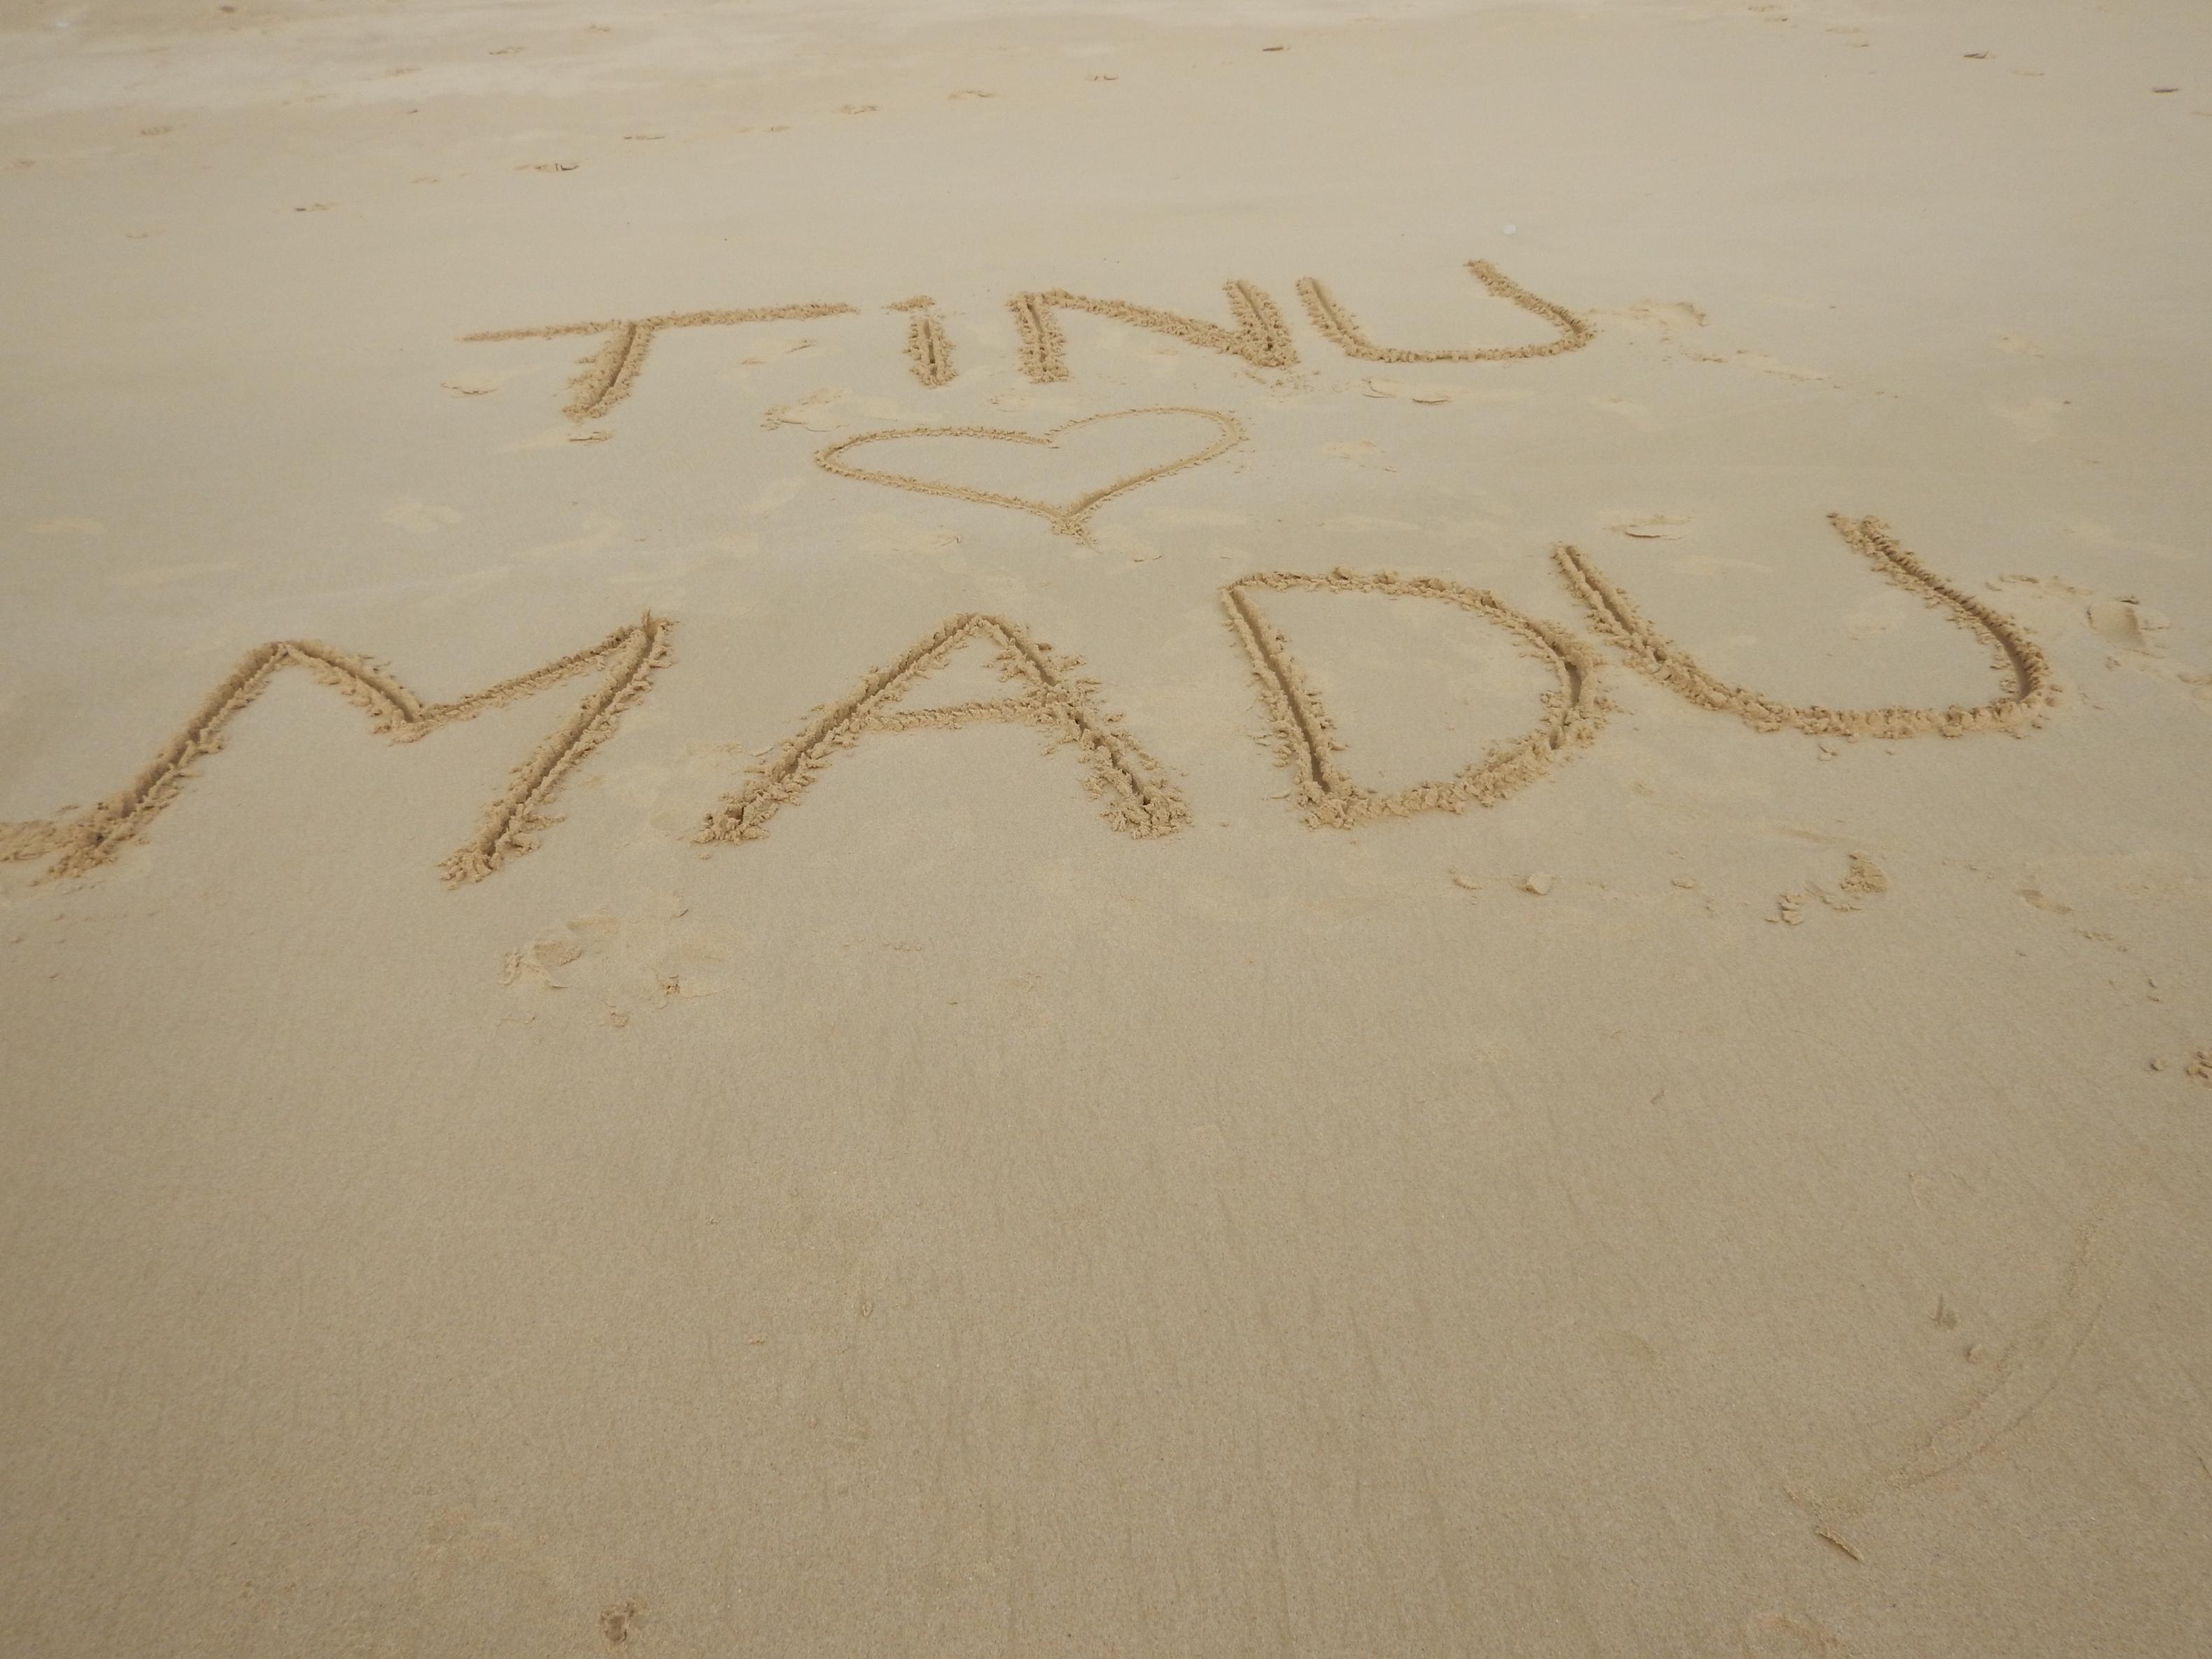 TINU
MADU